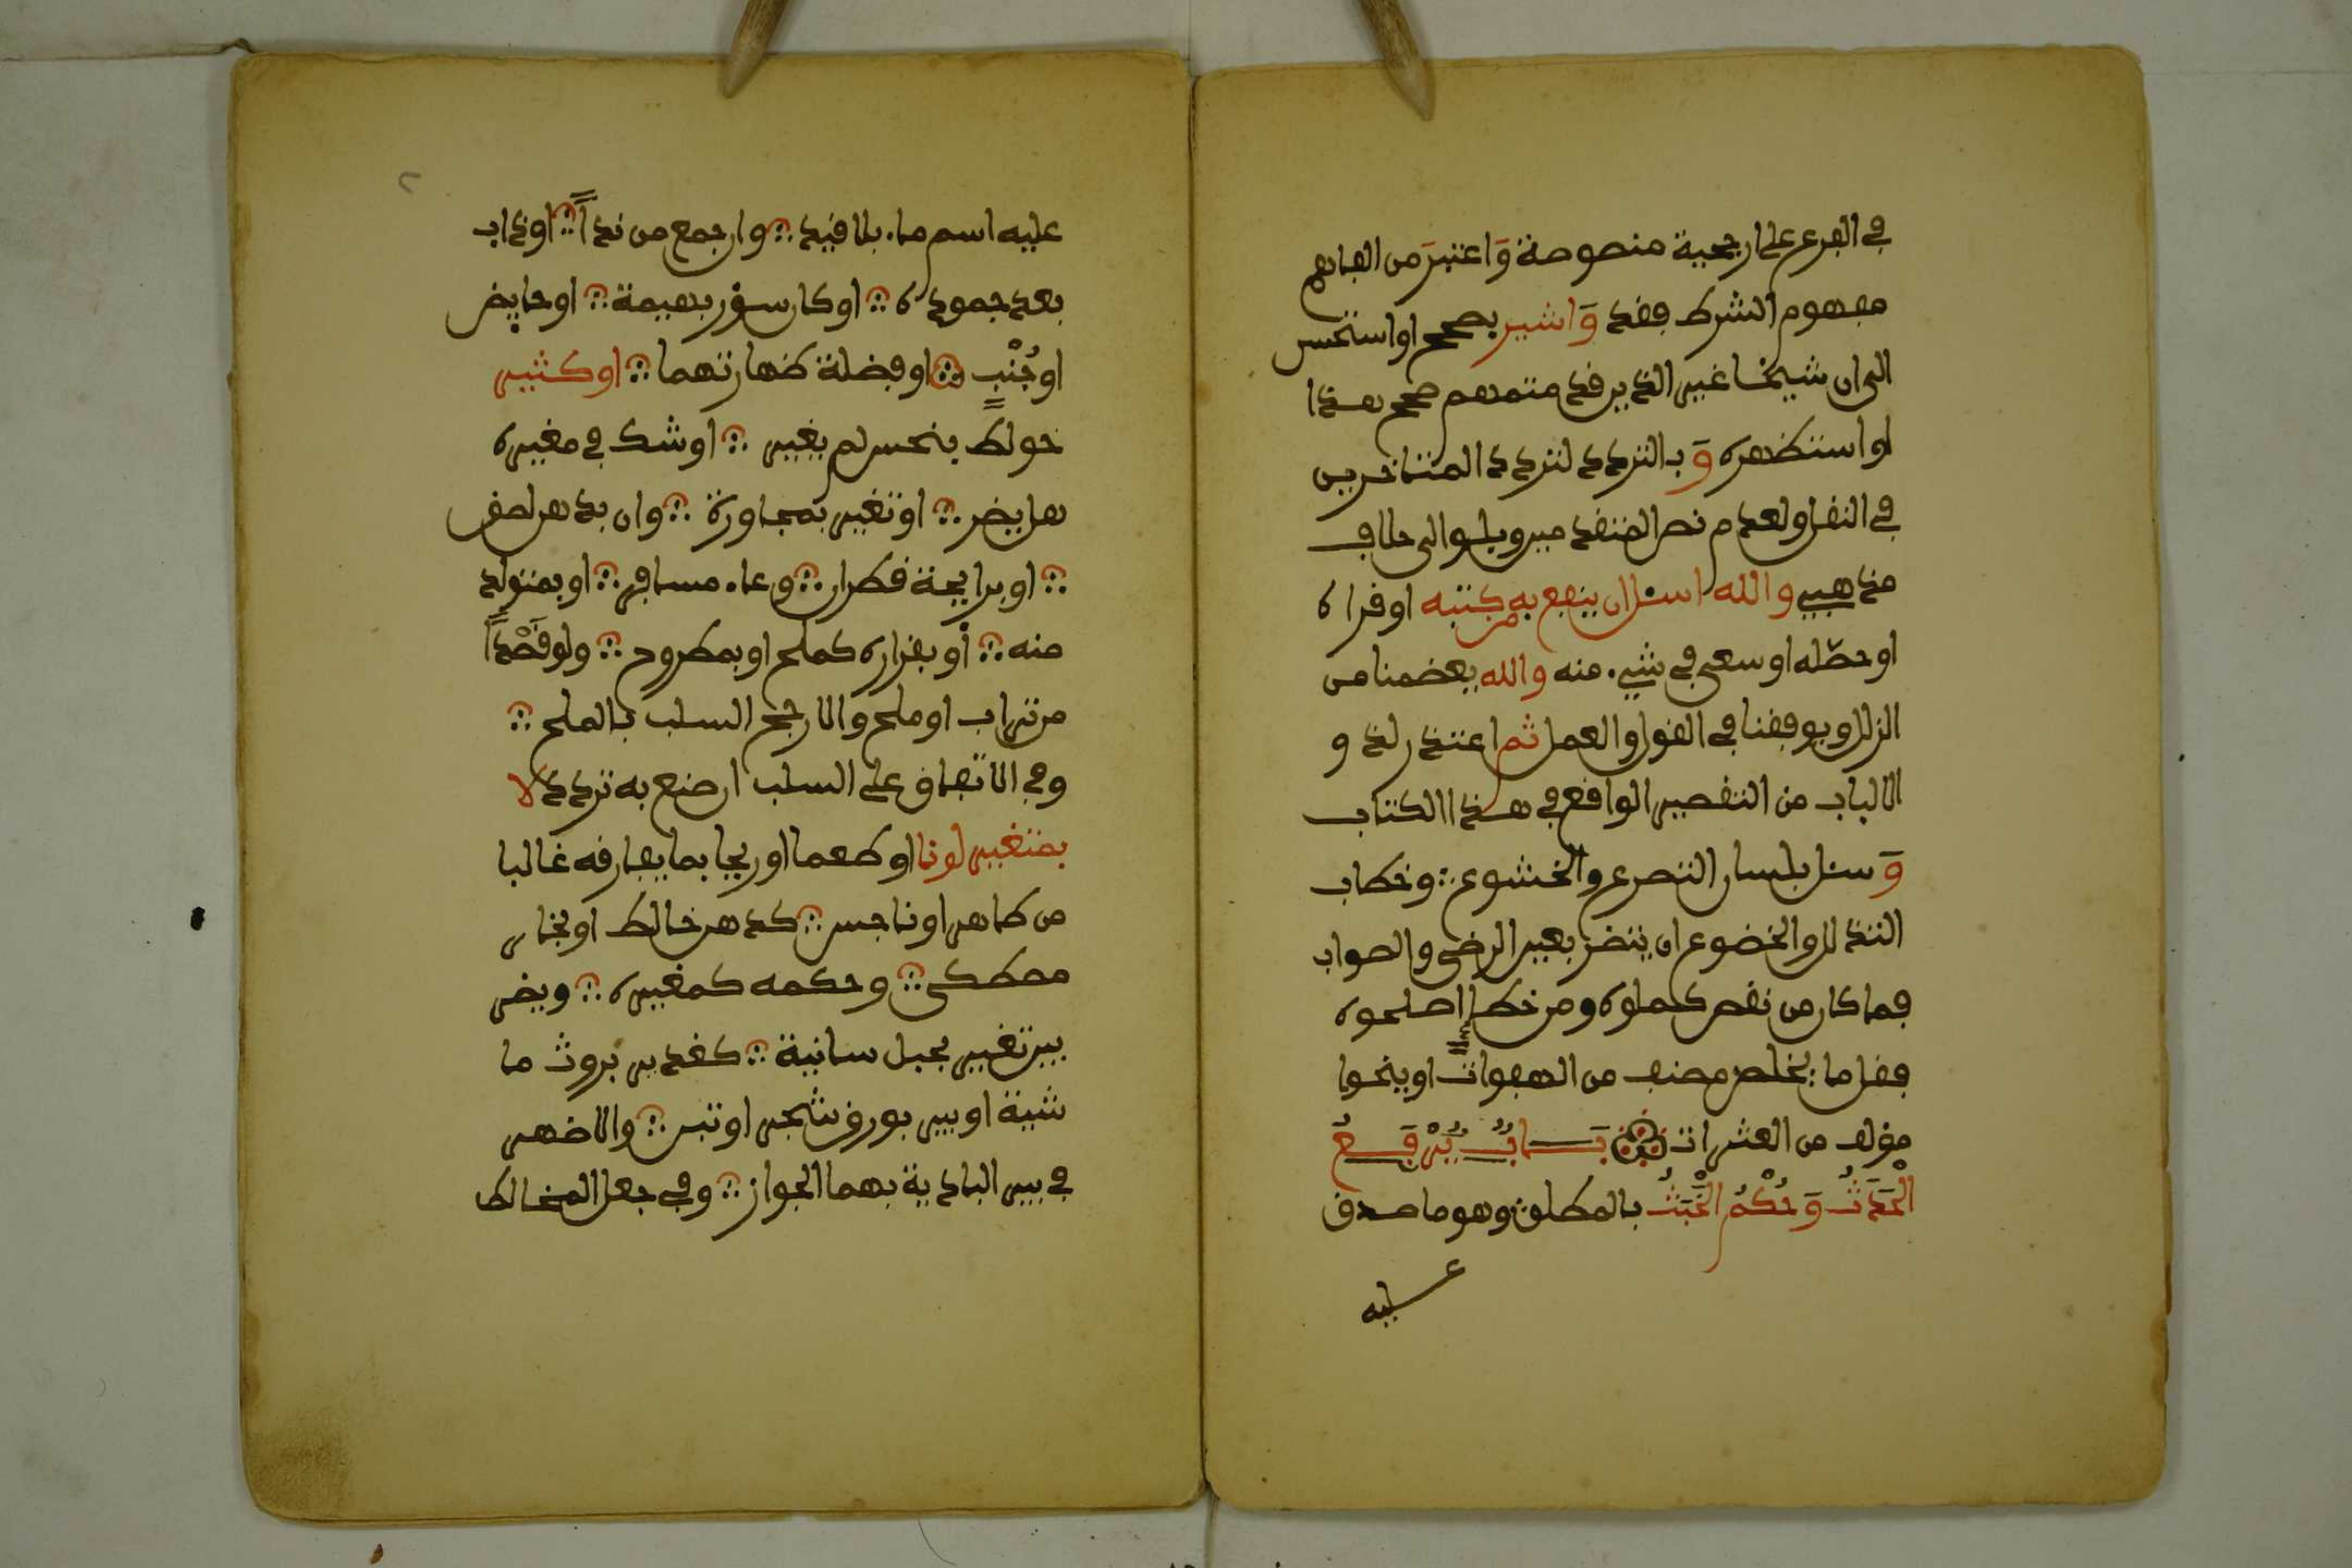 في الفرع على ارجحية منصوصة وَاعتبرَ من المفاهم
مفهوم الشرط فقط وَاشير بصحح او استحسن
الى ان شيخا غير الذين قدمتهم صحح هذا
او استظهره وَبالتردد لتردد المتاخرين
في النقل او لعدم نص المتقدمين وبلو الى خلاف
مذهبي والله اسئل ان ينفع به من كتبه او قراه
او حصّله او سعى في شيء منه والله يعصمنا من
الزلل ويوفقنا في القول والعمل ثم اعتذر لذو
الالباب من التقصير الواقع في هذا الكتاب
وَسئل بلسان التضرع والخشوع ∴ وخطاب
التذلل والخضوع ان ينظر بعين الرضى والصواب
فما كان من نقص كملوه ومن خطإ اصلحوه
فقل ما يخلص مصنف من الهفوات او ينجوا
مؤلف من العثرات بَابٌ يُرْفَعُ
الْحَدَثُ وَحُكْمُ الْخَبَثِ بالمطلق وهو ما صدق
عليه
٢
عليه اسم ماء بلا قيد ∴ وان جمع من نداً ∴ او ذاب
بعد جموده ∴ او كان سؤر بهيمة ∴ او حايض
او جُنُبٍ ∴ او فضلة طهارتهما ∴ او كثير
خولط بنجس لم يغير ∴ او شك في مغيره
هل يضر ∴ او تغير بمجاورة ∴ وان بدهن لاصق
∴ او برايحة قطران ∴ وعاء مسافر ∴ او بمتولد
منه ∴ أو بقراره كملح او بمطروح ∴ ولو قَصْداً
من تراب او ملح والارجح السلب بالملح ∴
وفي الاتفاق على السلب ان صنع به تردد لا
بمتغير لونا او طعما او ريحا بما يفارقه غالبا
من طاهر او ناجس ∴ كدهن خالط او بخار
مصطكى ∴ وحكمه كمغيره ∴ ويضر
بين تغير بحبل سانية ∴ كغدير بروث ما
شية او بير بورق شجر او تبن ∴ والاظهر
في بير البادية بهما الجواز ∴ وفي جعل المخالط